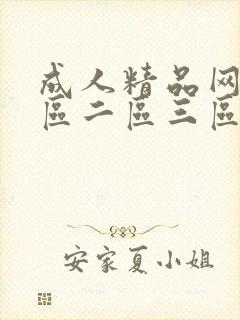 成人精品网
區二區三區
安家夏小姐